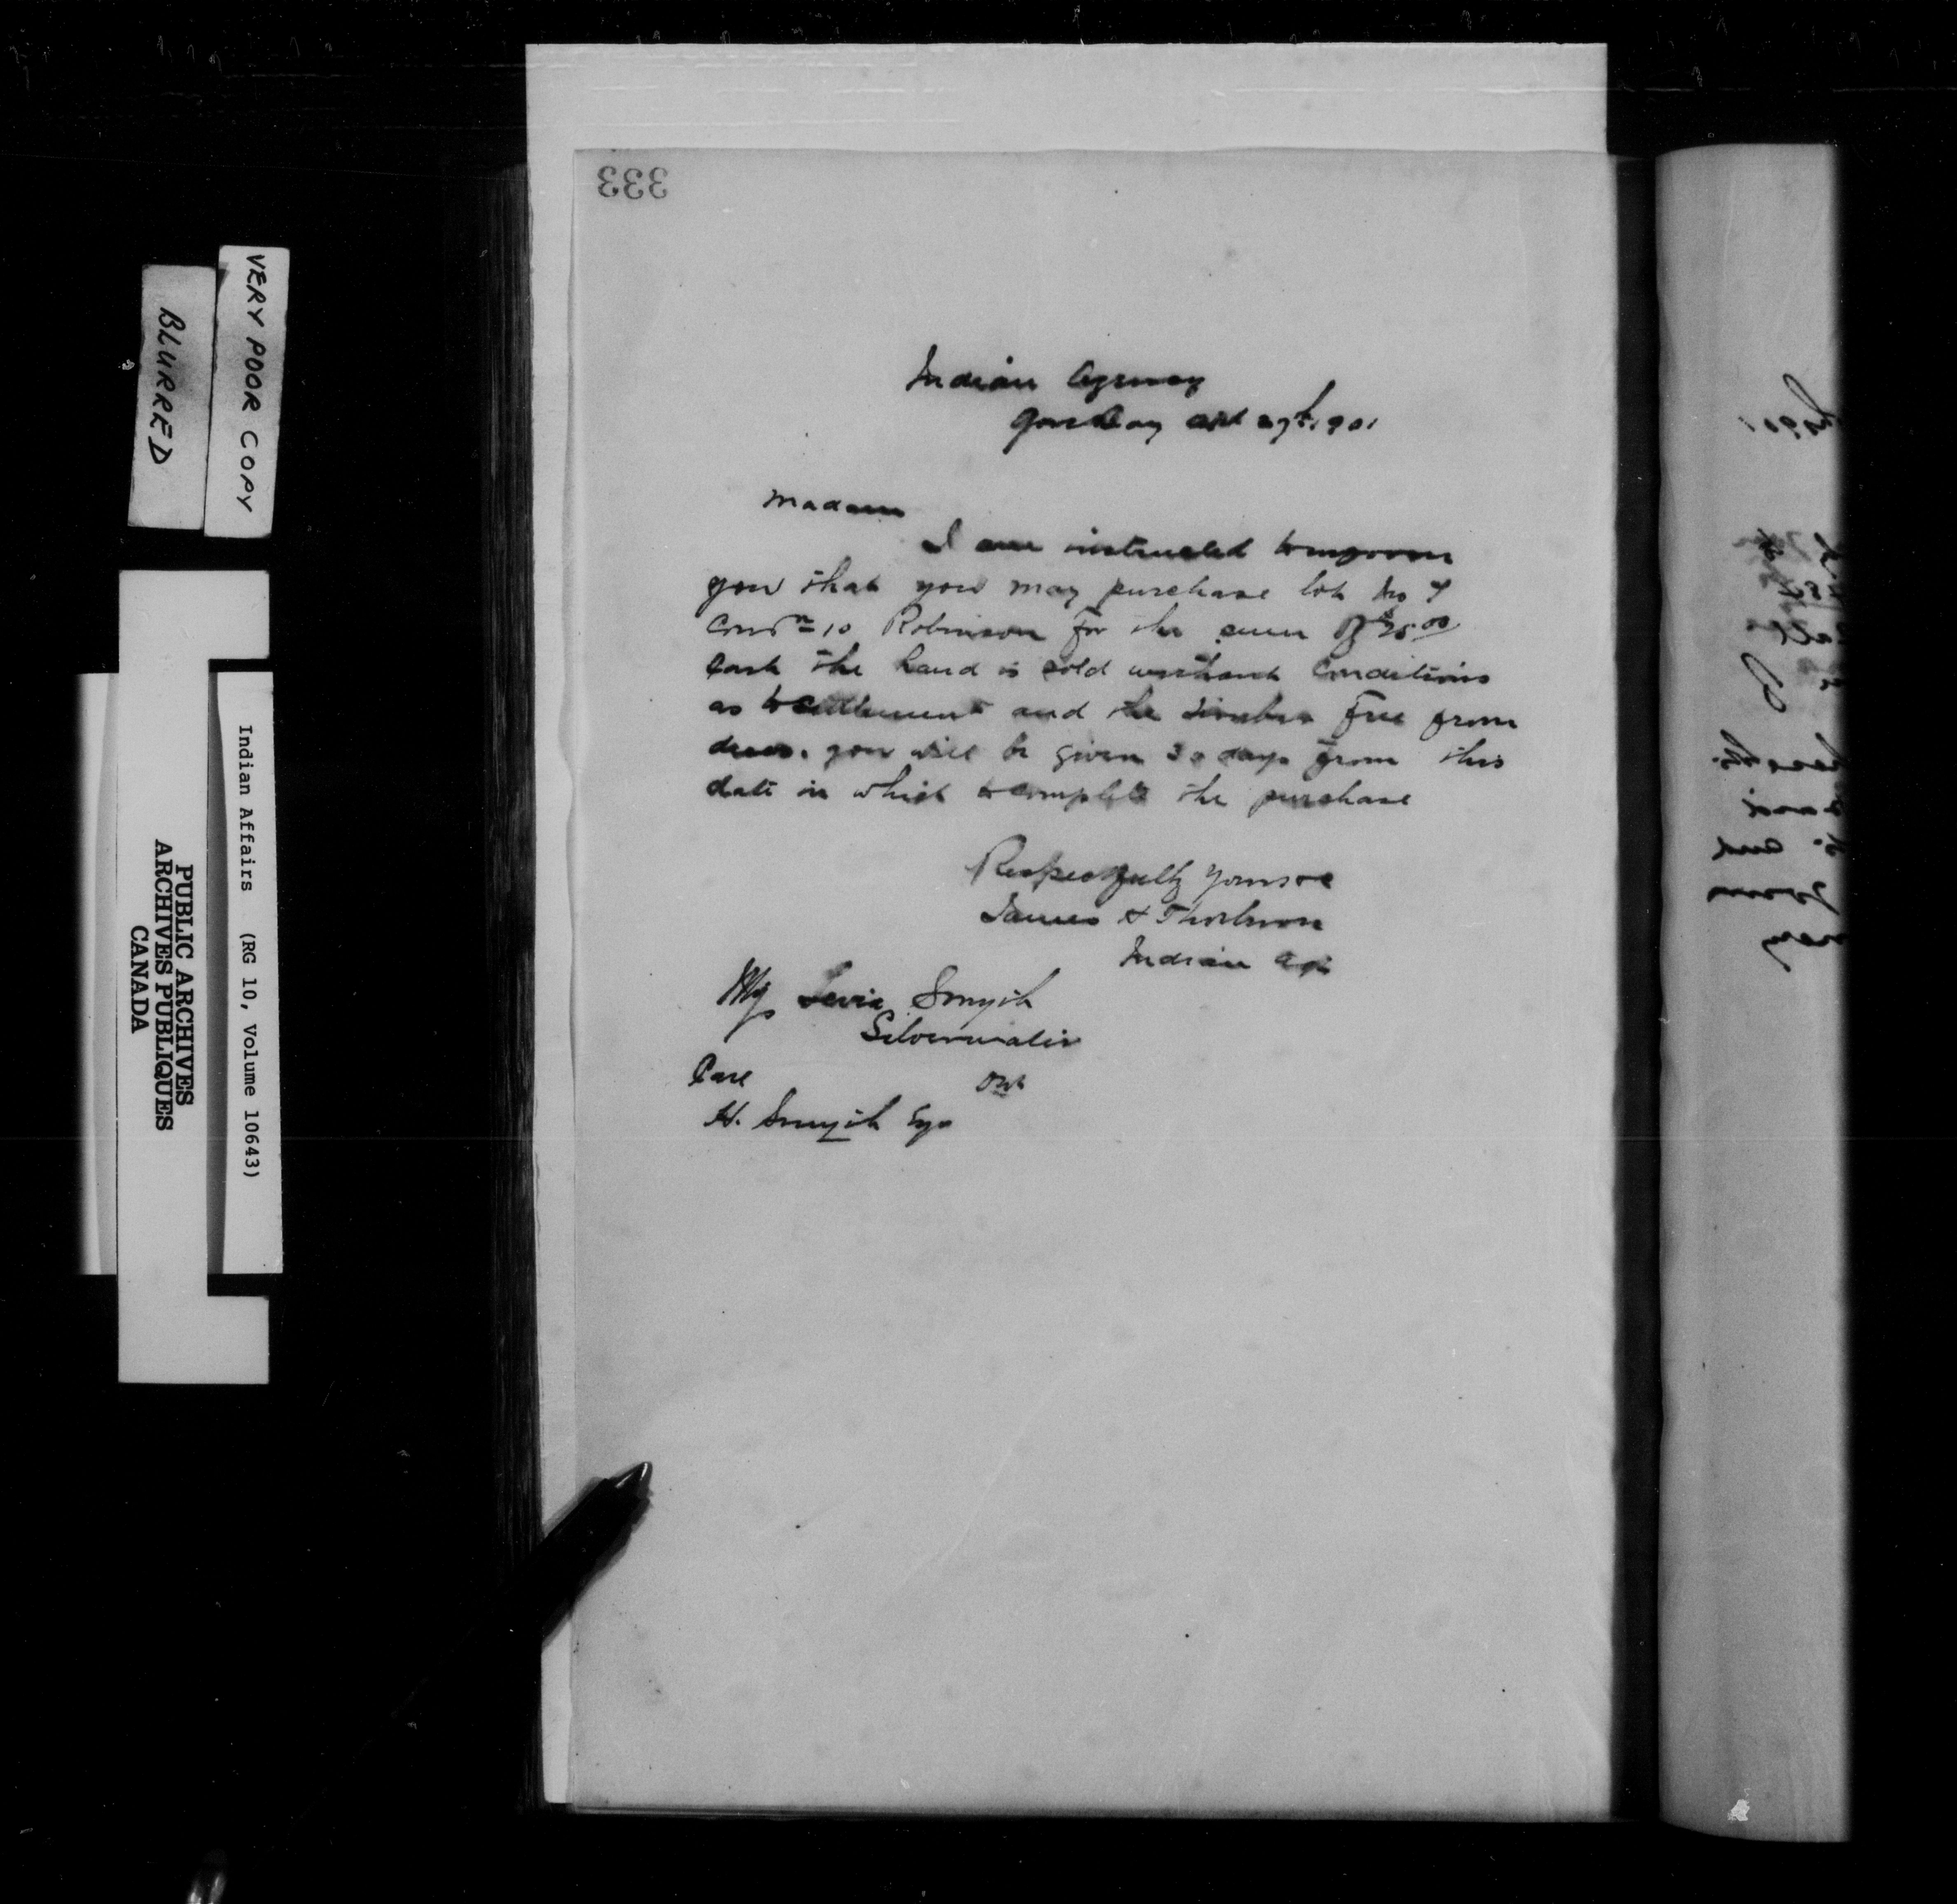 333
Indian Agency
Gore Bay Oct 29th 1901
Madam
I am instructed to inform
you that you may purchase lot No 7
Con 10 Robinson for the sum of $25.00
Cash the Land is sold without Conditions
as to settlement and the timber free from
dues. you will be given 30 days from this
date in which to complete the purchase
Respectfully Yours
James H Thorburn
Indian Agt
Mrs Smyth
Silverwater
Care Ont
H. Smyth Esq
VERY POOR COPY
BLURRED
Indian Affairs (RG 10, Volume 10643)
PUBLIC ARCHIVES
ARCHIVES PUBLIQUES
CANADA